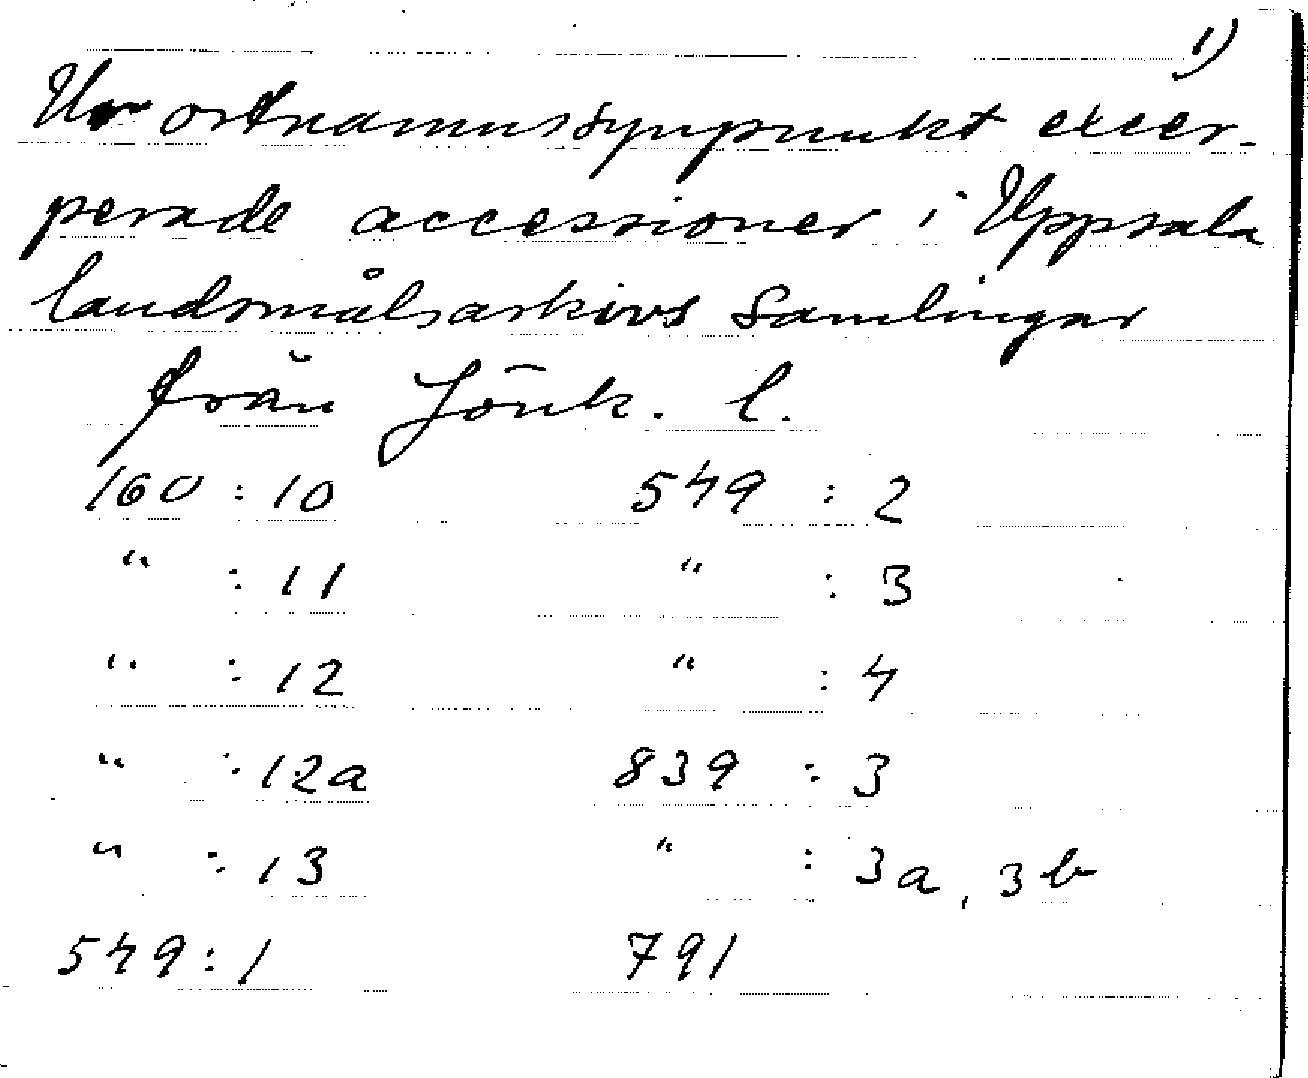 1)
Ur ortnamnssynpunkt excer-
perade accessioner i Uppsala
landsmålsarkivs samlingar
från Jönk. l.
160 : 10 549 : 2
" : 11 " : 3
" : 12 " : 4
" : 12a 839 : 3
" : 13 " : 3a, 3b
549 : 1 791